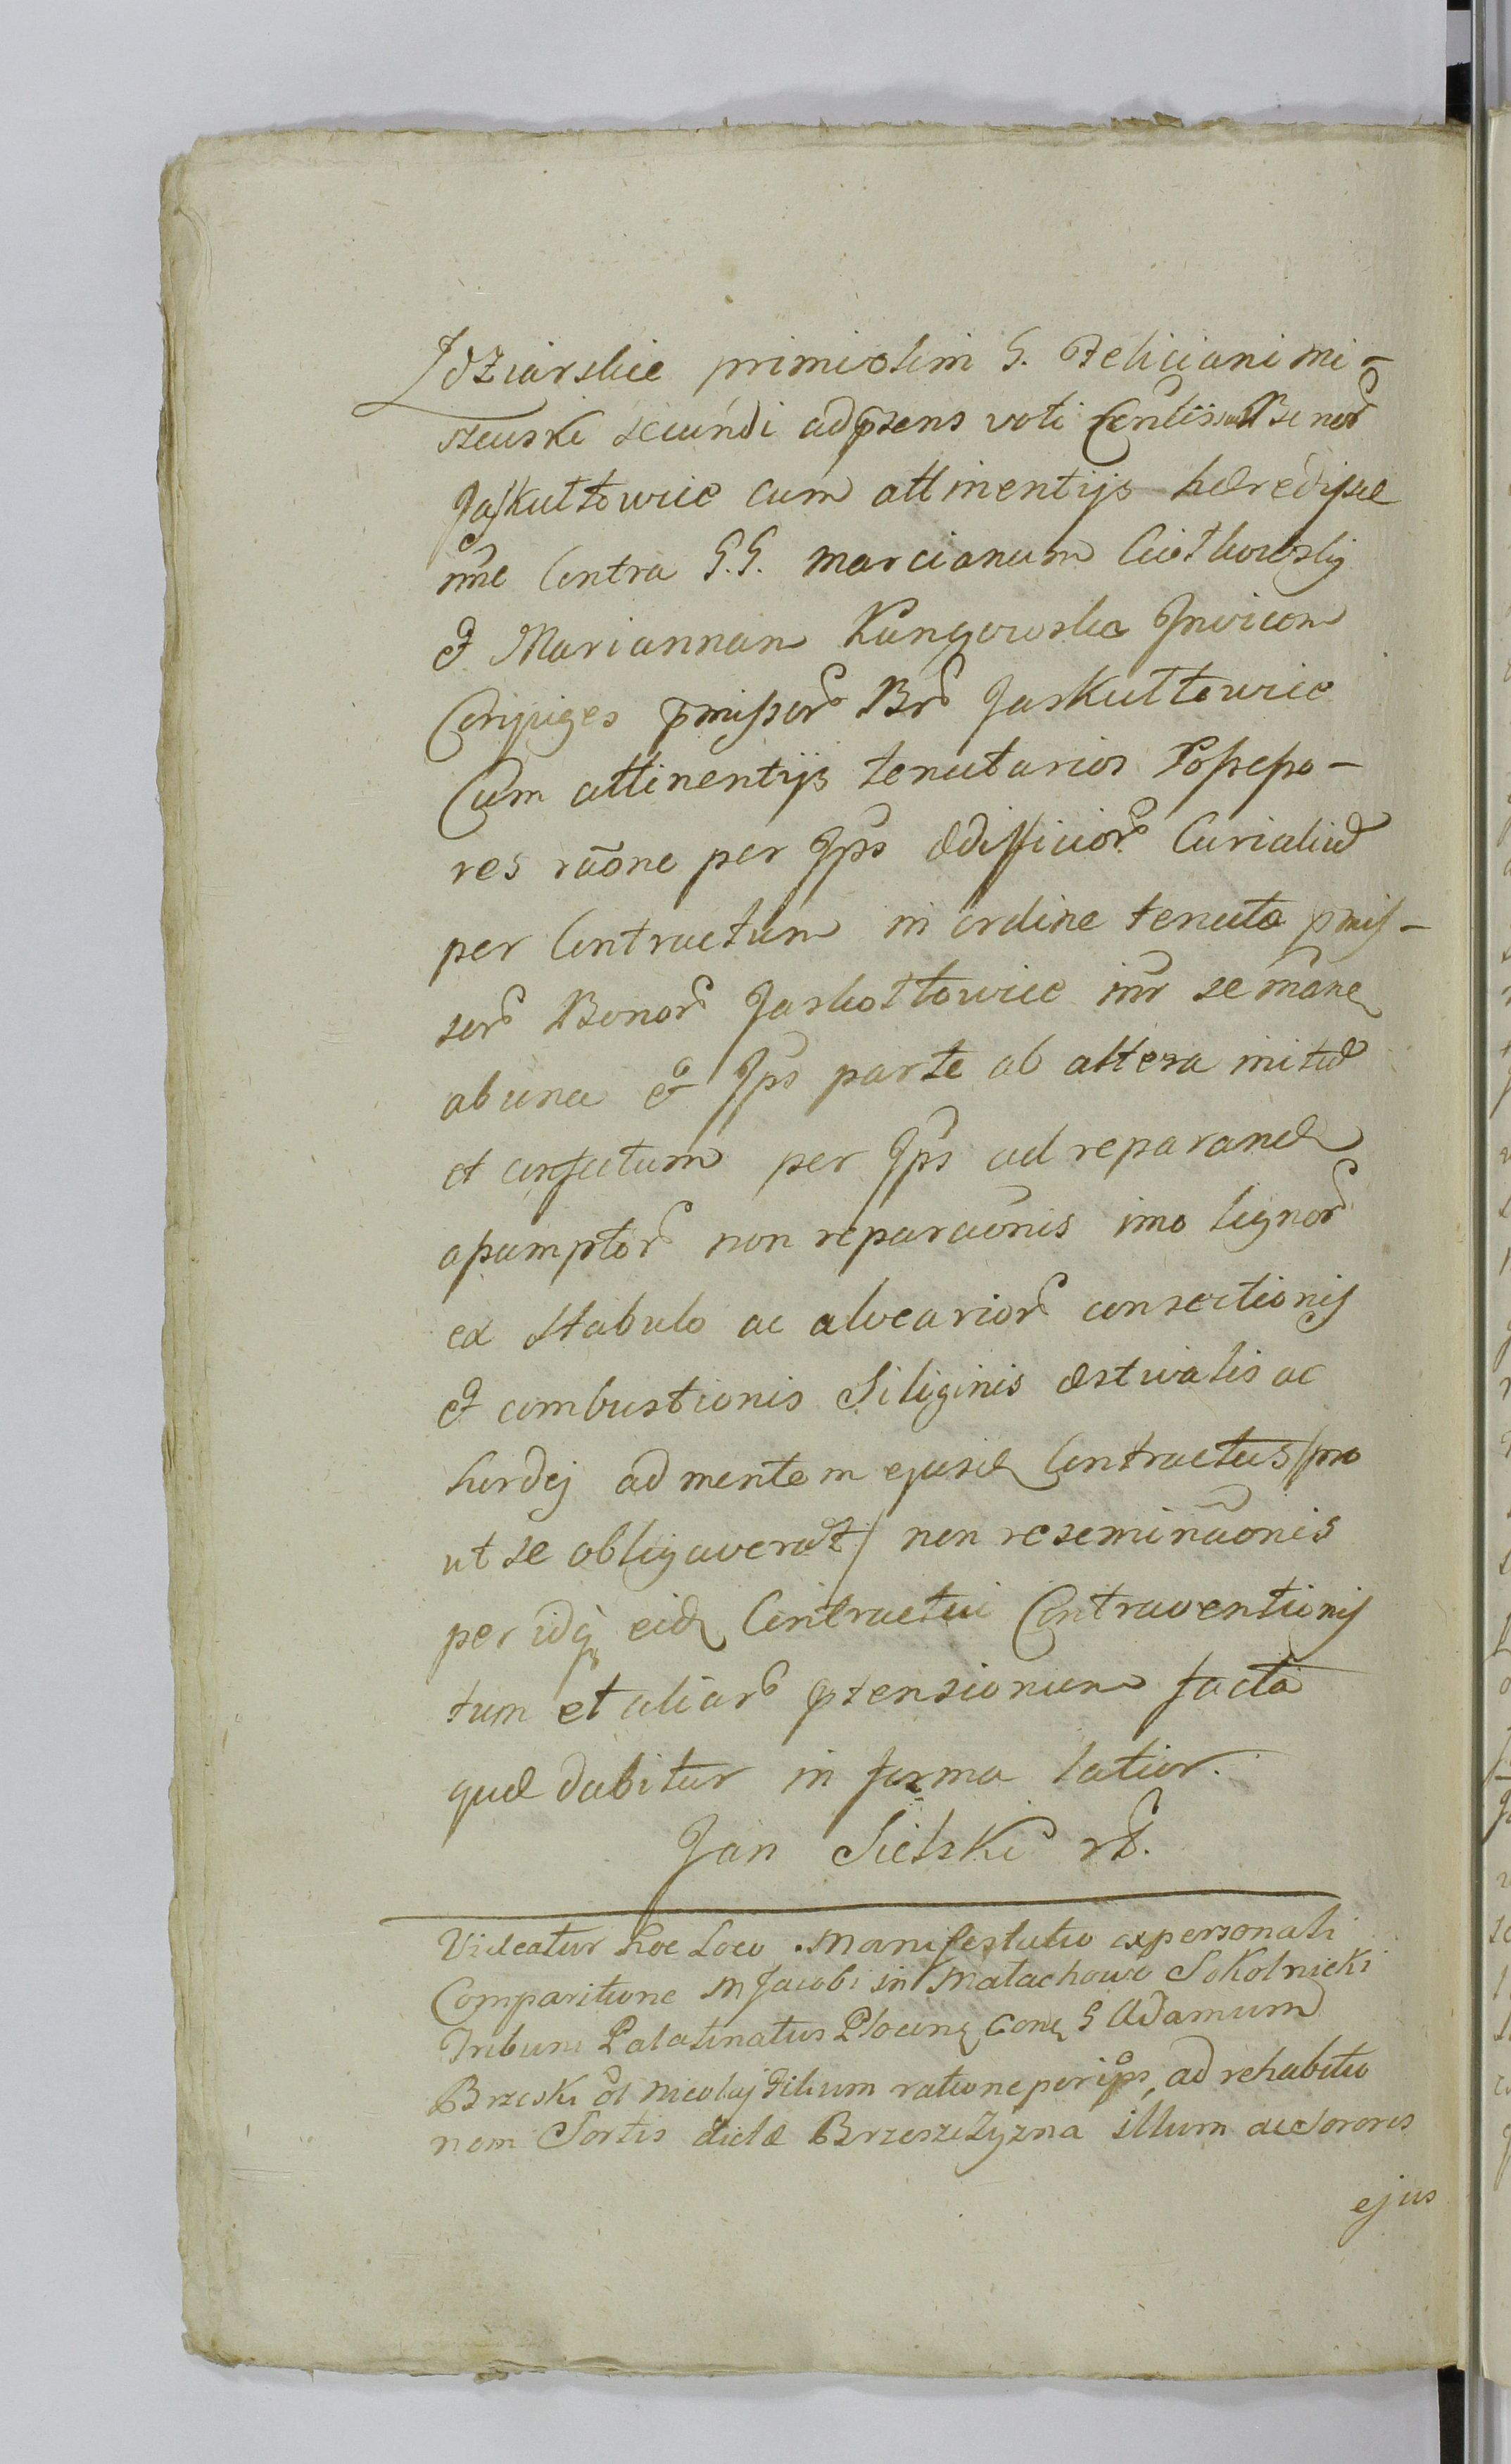 Jdziarskie primi olim G. Feliciani mi-
szewski secundi ad p̄sens voti Bonor
Jaskułtowice cum attinentijs hæredissæ
nñe Contra G.G. Marcianum
et Mariannam Kungowska Invicem
Conjuges p̄missor Br Jaskułtowice
Cum attinentijs tenutarios Possesso-
res rãone per Jps ædifficior Curialiũ
per Contractum in ordine tenutæ p̄mis-
sor Bonor Jaskołtowice intr se
ab una et Jps parte ab altera initũ
et confectum per Jps ad reparand
assumptor non reparãonis imo lignor
ex Stabulo ac alvearior consectionis
et combustionis Siliginis æstivalis ac
hordej ad mentem ejusd Contractus /pro
ut se obligaverãt/ non reseminãonis
per idq eid Contractui Contraventionis
tum et aliar p̄tensionum facta
quæ dabitur in forma latior.
Jan Sielski
Videatur hoc Loco Manifestatio ex personali
Comparitione M Jacobi in Małachowo Sokolnicki
Tribuni Palatinatus Plocen Con G Adamum
Brzeski ol Nicolaj Filium ratione per ips, ad rehabitio
nem Sortis dictæ Brzeszczyzna illum ac Sorores
ejus